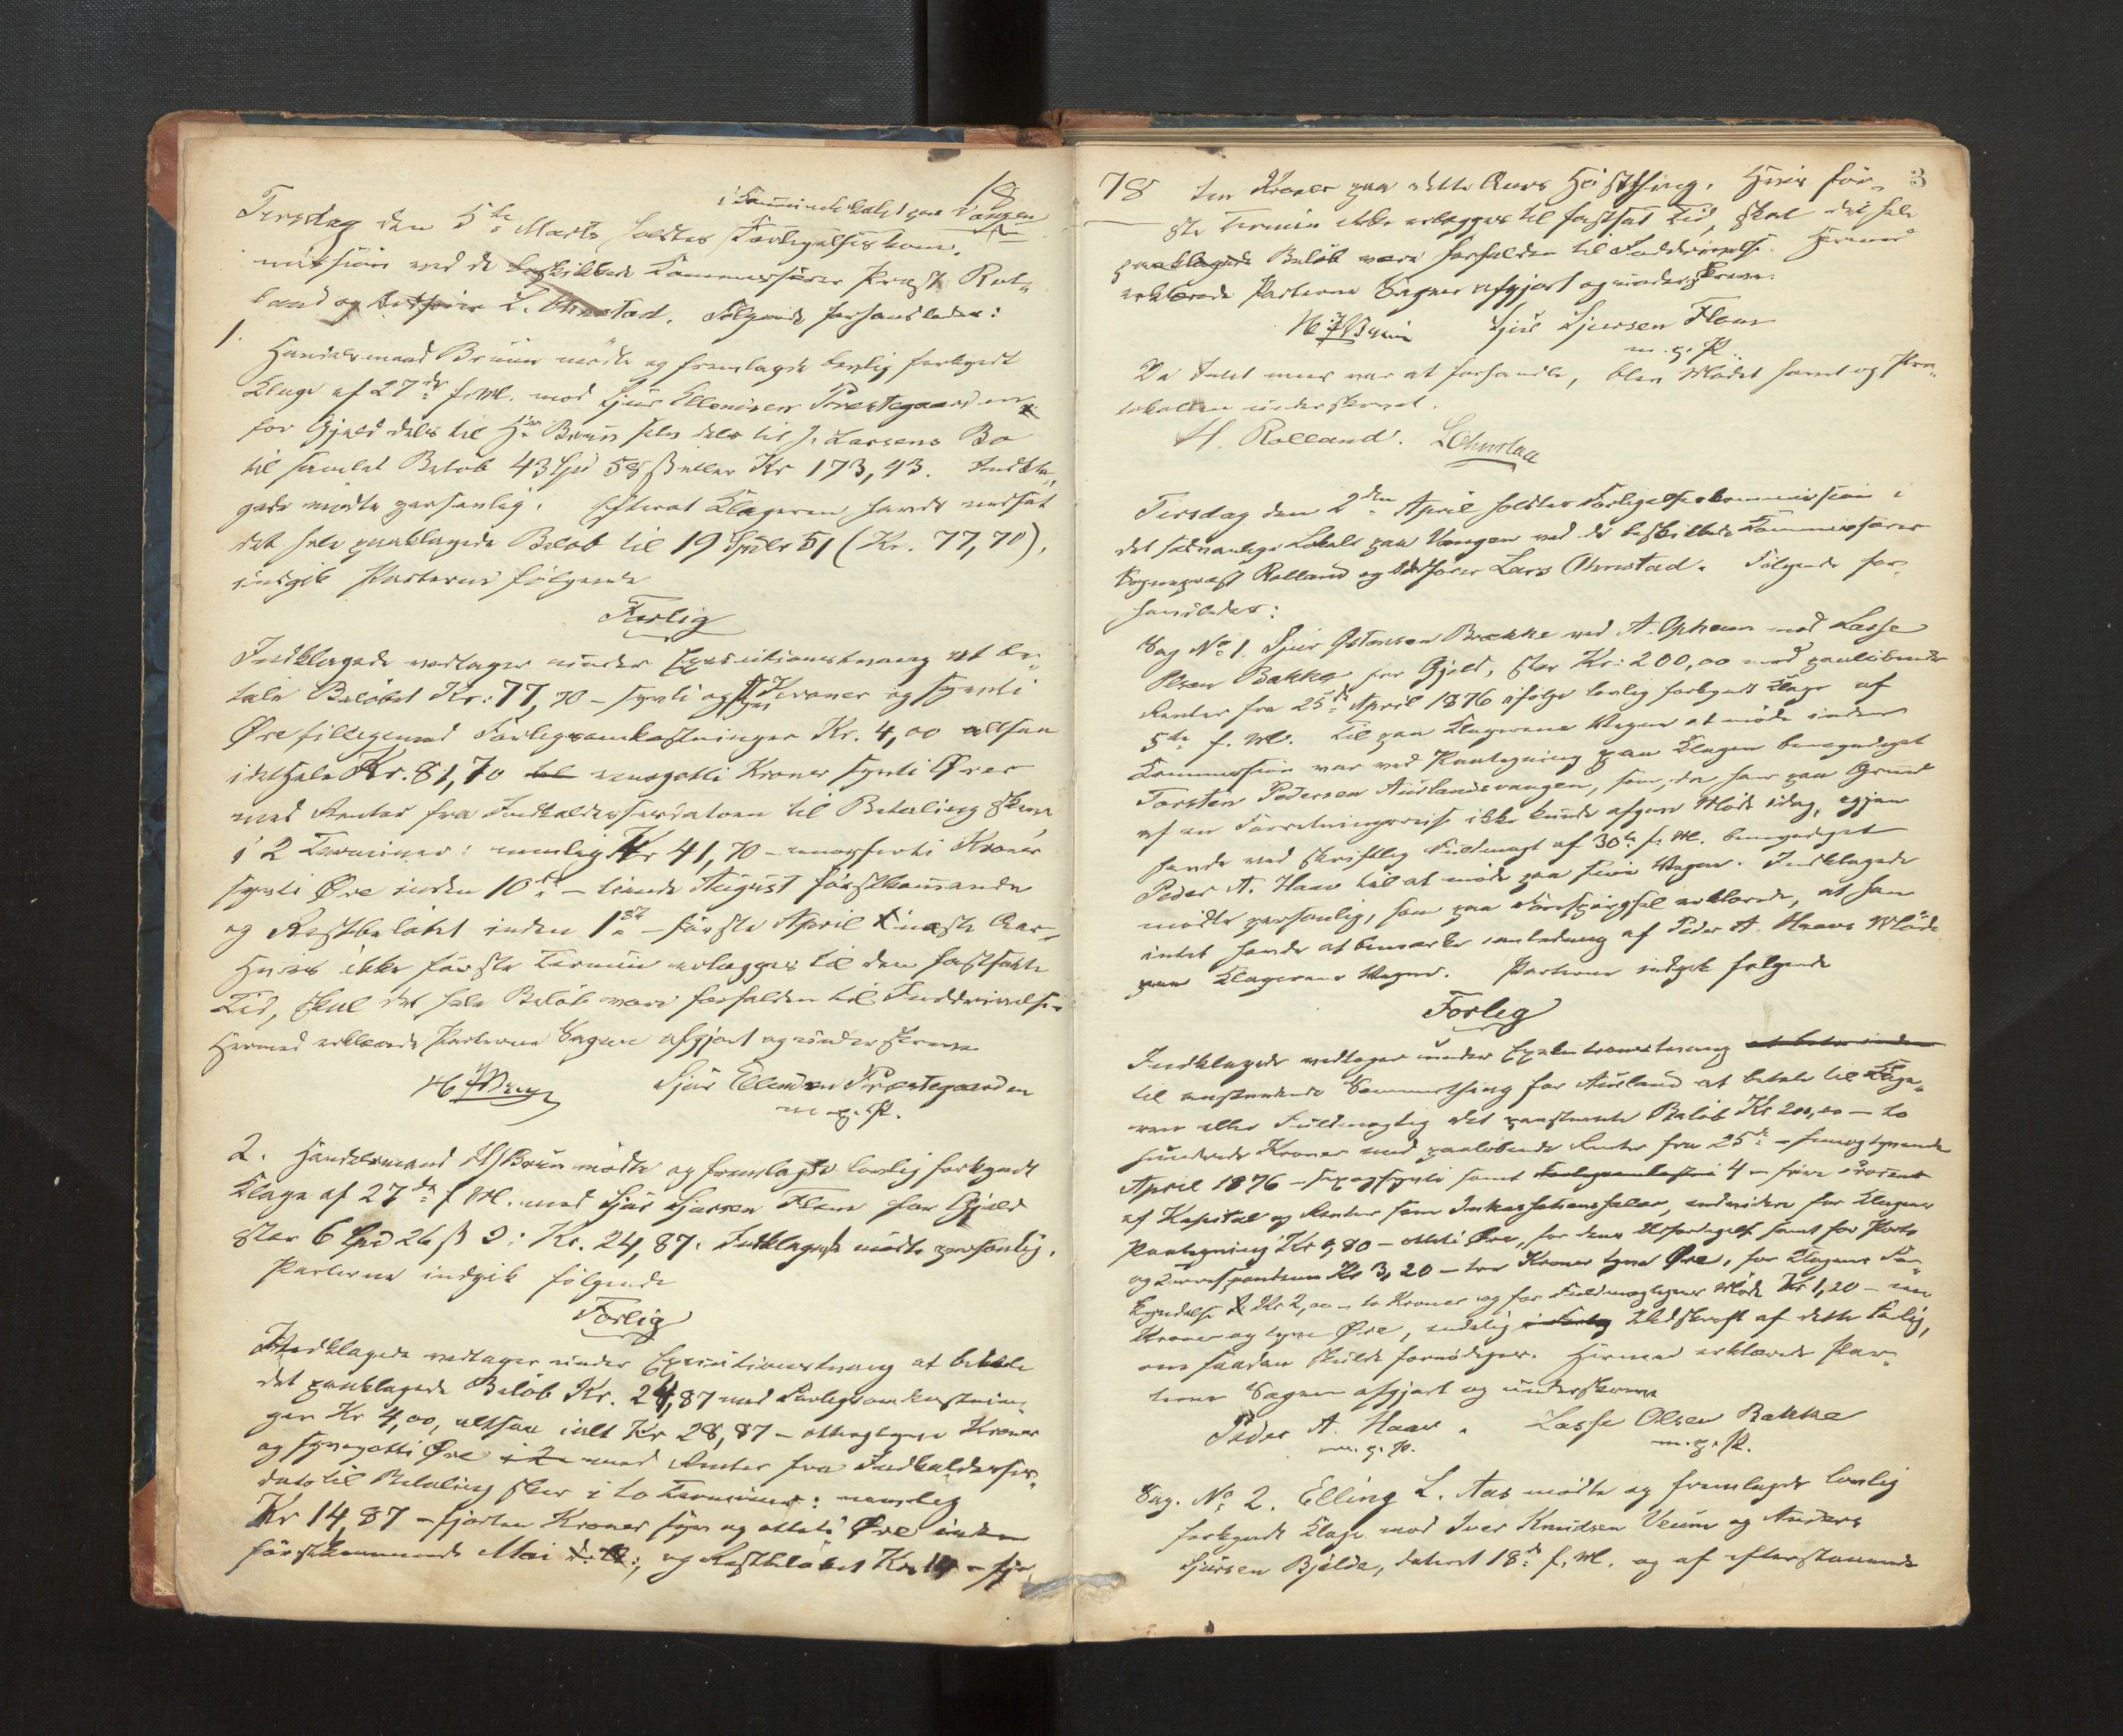 18
i Communelokalet paa Vangen
Tirsdag den 5te Marts holdtes Forligelseskom-
mission ved de beskikkede Kommissærer Prest Rol-
land og L. Ohnstad. Følgende forhandledes:
1.
Handelsmand Bruun mødte og fremlagde lovlig forkyndt
Klage af 27de f. M. mod Sjur Ellendsen Prestegaarden
for Gjæld dels til Hr. Bruun selv dels til J. Larsens Bo
til samlet Beløb 43 Spd 58 ß eller Kr 173,93. Indkla-
gede mødte personlig. Efterat Klageren havde nedsat
det hele paaklagede Beløb til 19 Spdlr 51 (Kr. 77,70),
indgik Parterne følgende
Forlig
Indklagede vedtager under Exekutionstvang at be-
tale Beløbet Kr: 77,70 – sytti og syv Kroner og sytti
Øre tilligemed Forligsomkostninger Kr. 4,00 altsaa
i det Hele Kr. 81,70 enogotti Kroner sytti Ører
med Renter fra Indkaldelsesdatoen til Betaling sker
i 2 Terminer: nemlig Kr 41,70 – enogførti Kroner
sytti Øre inden 10de – tiende August førstkommende
og Restbeløbet inden 1ste – første April næste Aar.
Hvis ikke første Termin erlægges til den fastsatte
Tid, skal det hele Beløb være forfalden til Inddrivelse.
Hermed erklærede Parterne Sagen afgjort og underskrev
Sjur Ellendsen Præstegaarden
m. p. P.
2. Handelsmand Bruun mødte og fremlagde lovlig forkyndt
Klage af 27de f. M. mod Sjur Sjursen Flam for Gjæld
stor 6 Spd 26 ß ɔ: Kr. 24,87. Indklagede mødte personlig.
Parterne indgik følgende
Forlig
Indklagede vedtager under Exekutionstvang at betale
det paaklagede Beløb Kr. 24,87 med Forligsomkostnin-
ger Kr 4,00, altsaa ialt Kr 28,87 – otteogtyve Kroner
og syvogotti Øre med Renter fra Indkaldelses-
dato til Betaling sker i to Terminer: nemlig
Kr 14,87 – fjorten Kroner syv og otteti Øre inden
førstkommende Mai og Restbeløbet Kr. 14 – fjor-
78 3
ten Kroner paa dette Aars Høstthing. Hvis før-
ste Termin ikke erlægges til fastsat Tid, skal det hele
paaklagede Beløb være forfalden til Inddrivelse. Hermed
erklærede Parterne Sagen afgjort og underskrev.
Bruun Sjur Sjursen Flam
m. p. P.
Da Intet mer var at forhandle, blev Mødet hævet og Pro-
tokollen underskrevet.
H. Rolland. L Ohnstad
Tirsdag den 2den April holdtes Forligelseskommission i
det sædvanlige Lokale paa Vangen ved de beskikkede Kommissærer
Sogneprest Rolland og Lars Ohnstad. Følgende for-
handledes:
Sag No 1. Sjur Østensen Brække ved A. Opheim mod Lasse
Olsen Bakke for Gjæld, stor Kr: 200,00 med paaløbende
Renter fra 25de April 1876 ifølge lovlig forkyndt Klage af
5te f. M. Til paa Klagerens Vegne at møde inden
Kommission var ved Paategning paa Klagen bemyndiget
Torsten Pedersen Aurlandsvangen, som, da han paa Grund
af en Forretningsreise ikke kunde afgive Møde idag, igjen
havde ved skriftlig Fuldmagt af 30te f. M. bemyndiget
Peder A. Haav til at møde paa sine Vegne. Indklagede
mødte personlig, som paa Forespørgsel erklærede, at han
intet havde at bemærke i anledning af Peder A. Haavs Møde
paa Klagerens Vegne. Parterne indgik følgende
Forlig
Indklagede vedtager under Exekutionstvang
til anstundende Sommerthing for Aurland at betale til Klage-
ren eller Fuldmægtig det paastevnte Beløb Kr 200,00 – to
hundrede Kroner med paaløbende Renter fra 25de – femogtyvende
April 1876 – sexogsytti samt 4 – fire Procent
af Kapital og Renter som Inkassationssalær, endvidere for Klagens
Paategning Kr 0,80 – otteti Øre, for dens Udfærdigelse samt for Porto
og Korrespondance Kr 3,20 – tre Kroner tyve Øre, for Klagens For-
kyndelse Kr 2,00 – to Kroner og for Fuldmægtigens Møde Kr 1,20 – en
Krone og tyve Øre, endelig Udskrift af dette Forlig,
om saadan skulde fornødiges. Hermed erklærede Par-
terne Sagen afgjort og underskrev
Peder A. Haav. Lasse Olsen Bakke
m. p. P. m. p. P.
Sag. No 2. Elling L. Aas mødte og fremlagde lovlig
forkyndt Klage mod Iver Knudsen Veum og Anders
Sjursen Bjelde, dateret 18de f. M. og af efterstaaende